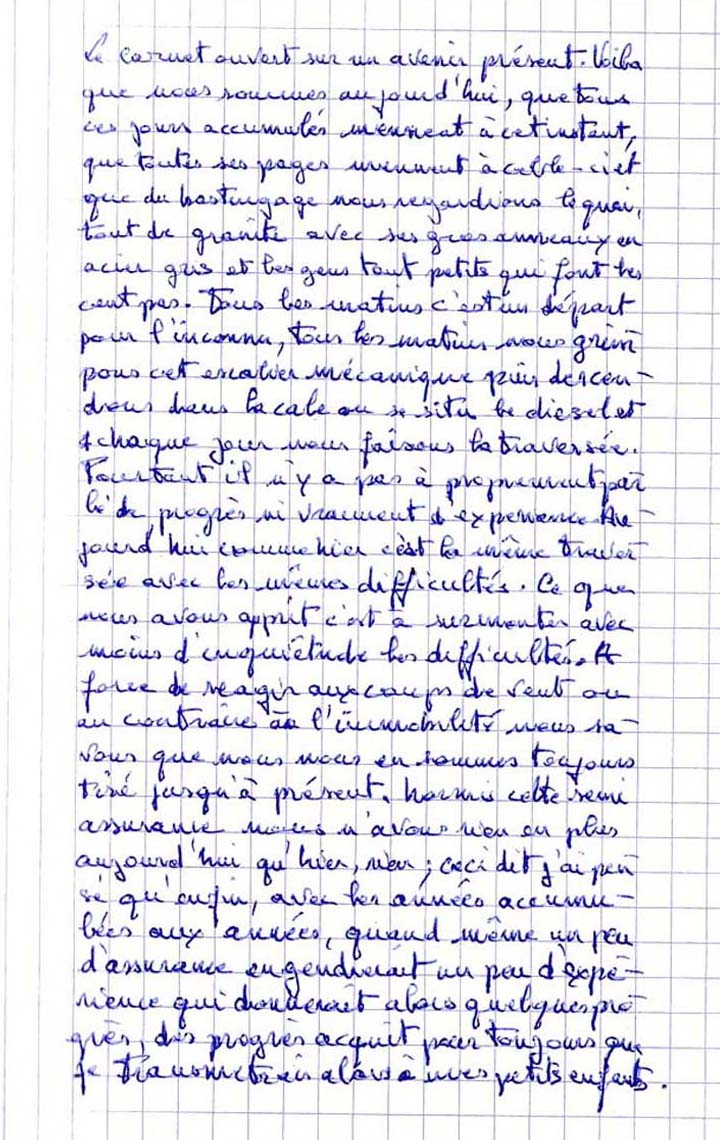 Le carnet ouvert sur un avenir présent. Voila
que nous sommes aujourd'hui, que tous
ces jours accumulés mènent à cet instant,
que toutes ses pages mènent à celle-ci et
que du bastingage nous regardions le quai,
tout de granite avec ses gros anneaux en
acier gris et les gens tout petits qui font les
cent pas. Tous les matins c'est un départ
pour l'inconnu, tous les matins nous grim
pons cet escalier mécanique puis descen-
dons dans la cale ou se situ le diesel et
chaque jour nous faisons la traversée.
Pourtant il n'y a pas à proprement par
lé de progrès ni vraiment d'experience. Au-
jourd'hui comme hier c'est la même traver
sée avec les mêmes difficultés. Ce que
nous avons apprit c'est à surmonter avec
moins d'inquiétude les difficultés. A
force de réagir aux coups de vent ou
au contraire à l'immobilité nous sa-
vons que nous nous en sommes toujours
tiré jusqu'à présent. hormis cette semi
assurance nous n'avons rien en plus
aujourd'hui qu'hier, rien ; ceci dit j'ai pen
sé qu'enfin, avec les années accumu-
lées aux années, quand même un peu
d'assurance engendrerait un peu d'expé-
rience qui donnerait alors quelques pro
grès, des progrès acquit pour toujours que
je transmetrais alors à mes petits enfants.